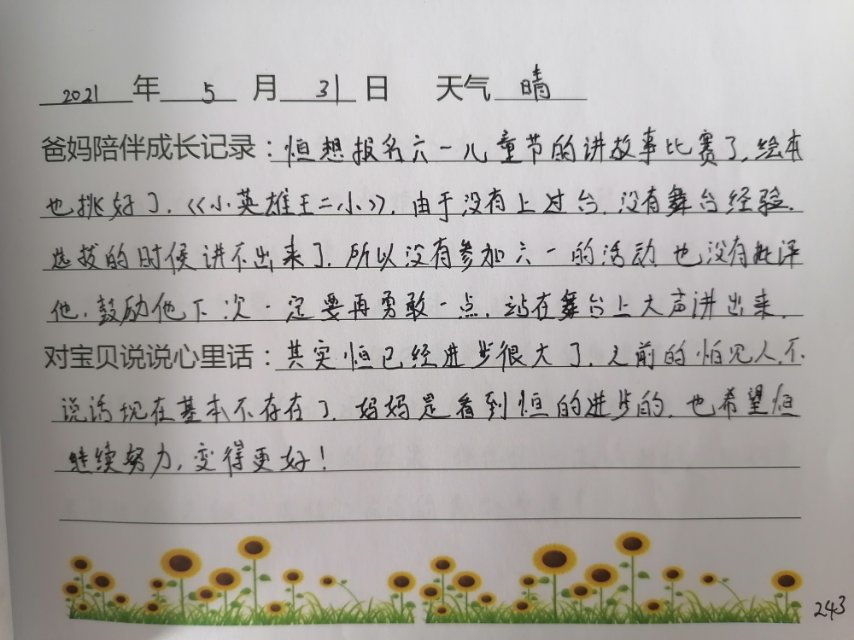 2021 年 5 月 31 日 天气 晴
爸妈陪伴成长记录：恒想报名六一儿童节的讲故事比赛了,绘本
也挑好了,《小英雄王二小》,由于没有上过台,没有舞台经验,
选拔的时候讲不出来了,所以没有参加六一的活动,也没有批评
他,鼓励他下次一定要再勇敢一点,站在舞台上大声讲出来,
对宝贝说说心里话：其实恒已经进步很大了,之前的怕见人,不
说话现在基本不存在了,妈妈是看到恒的进步的,也希望恒
继续努力,变得更好!
243